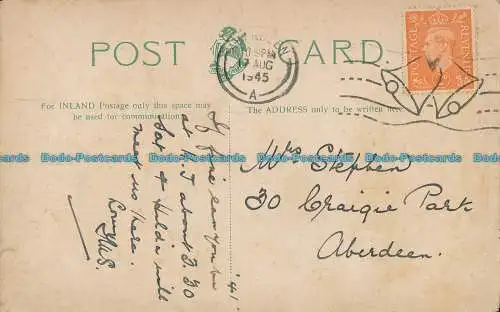 POST CARD.
PM
AUG
1945
A
POSTAGE
REVENUE
For INLAND Postage only this space may
be used for communication.
The ADDRESS only to be written here.
Dodo-Postcards Dodo-Postcards Dodo-Postcards Dodo-Postcards
Dodo-Postcards Dodo-Postcards Dodo-Postcards Dodo-Postcards
If fine can you be
at about 3.30
Sat & Hilda will
meet us there.
'41
Mrs Stephen
30 Craigie Park
Aberdeen.